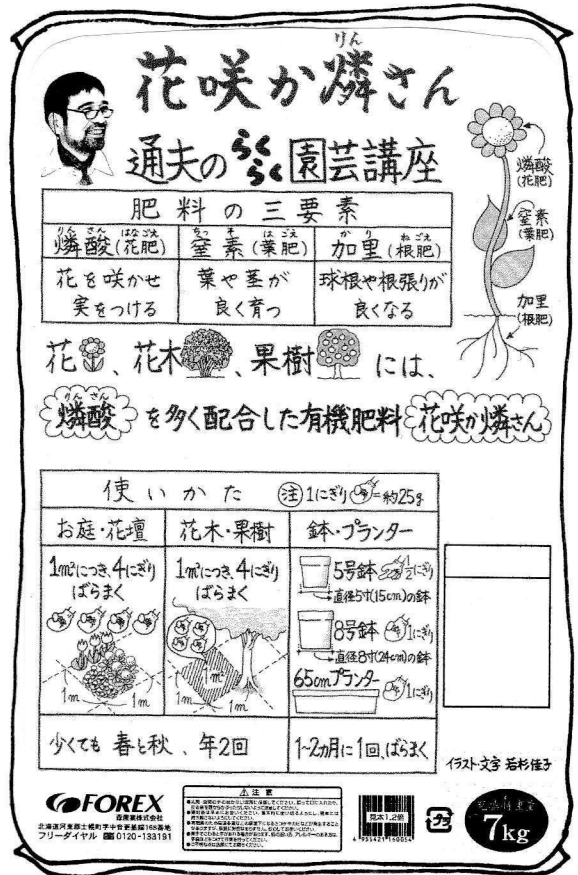 花咲か燐さん
りん
通夫の らくらく 園芸講座
肥料の三要素
燐酸(花肥) 窒素(葉肥) 加里(根肥)
りん さん はなごえ ちっ そ はごえ かり ねごえ
花を咲かせ 実をつける
葉や茎が 良く育つ
球根や根張りが 良くなる
燐酸
(花肥)
窒素
(葉肥)
加里
(根肥)
花、花木、果樹には、
りん さん
燐酸を多く配合した有機肥料花咲か燐さん
使いかた 注1にぎり=約25g
お庭・花壇 花木・果樹 鉢・プランター
1m²につき、4にぎり
ばらまく
1m 1m
1m²につき、4にぎり
ばらまく
1m²
1m 1m
5号鉢 1/2にぎり
直径5寸(15cm)の鉢
8号鉢 1にぎり
直径8寸(24cm)の鉢
65cmプランター 1にぎり
少くても 春と秋、年2回
1~2ヵ月に1回、ばらまく
イラスト・文字 若杉佳子
FOREX
森産業株式会社
北海道河東郡士幌町字中音更基線168番地
フリーダイヤル 0120-133191
注意
見本1.2倍
4955421160054
7kg